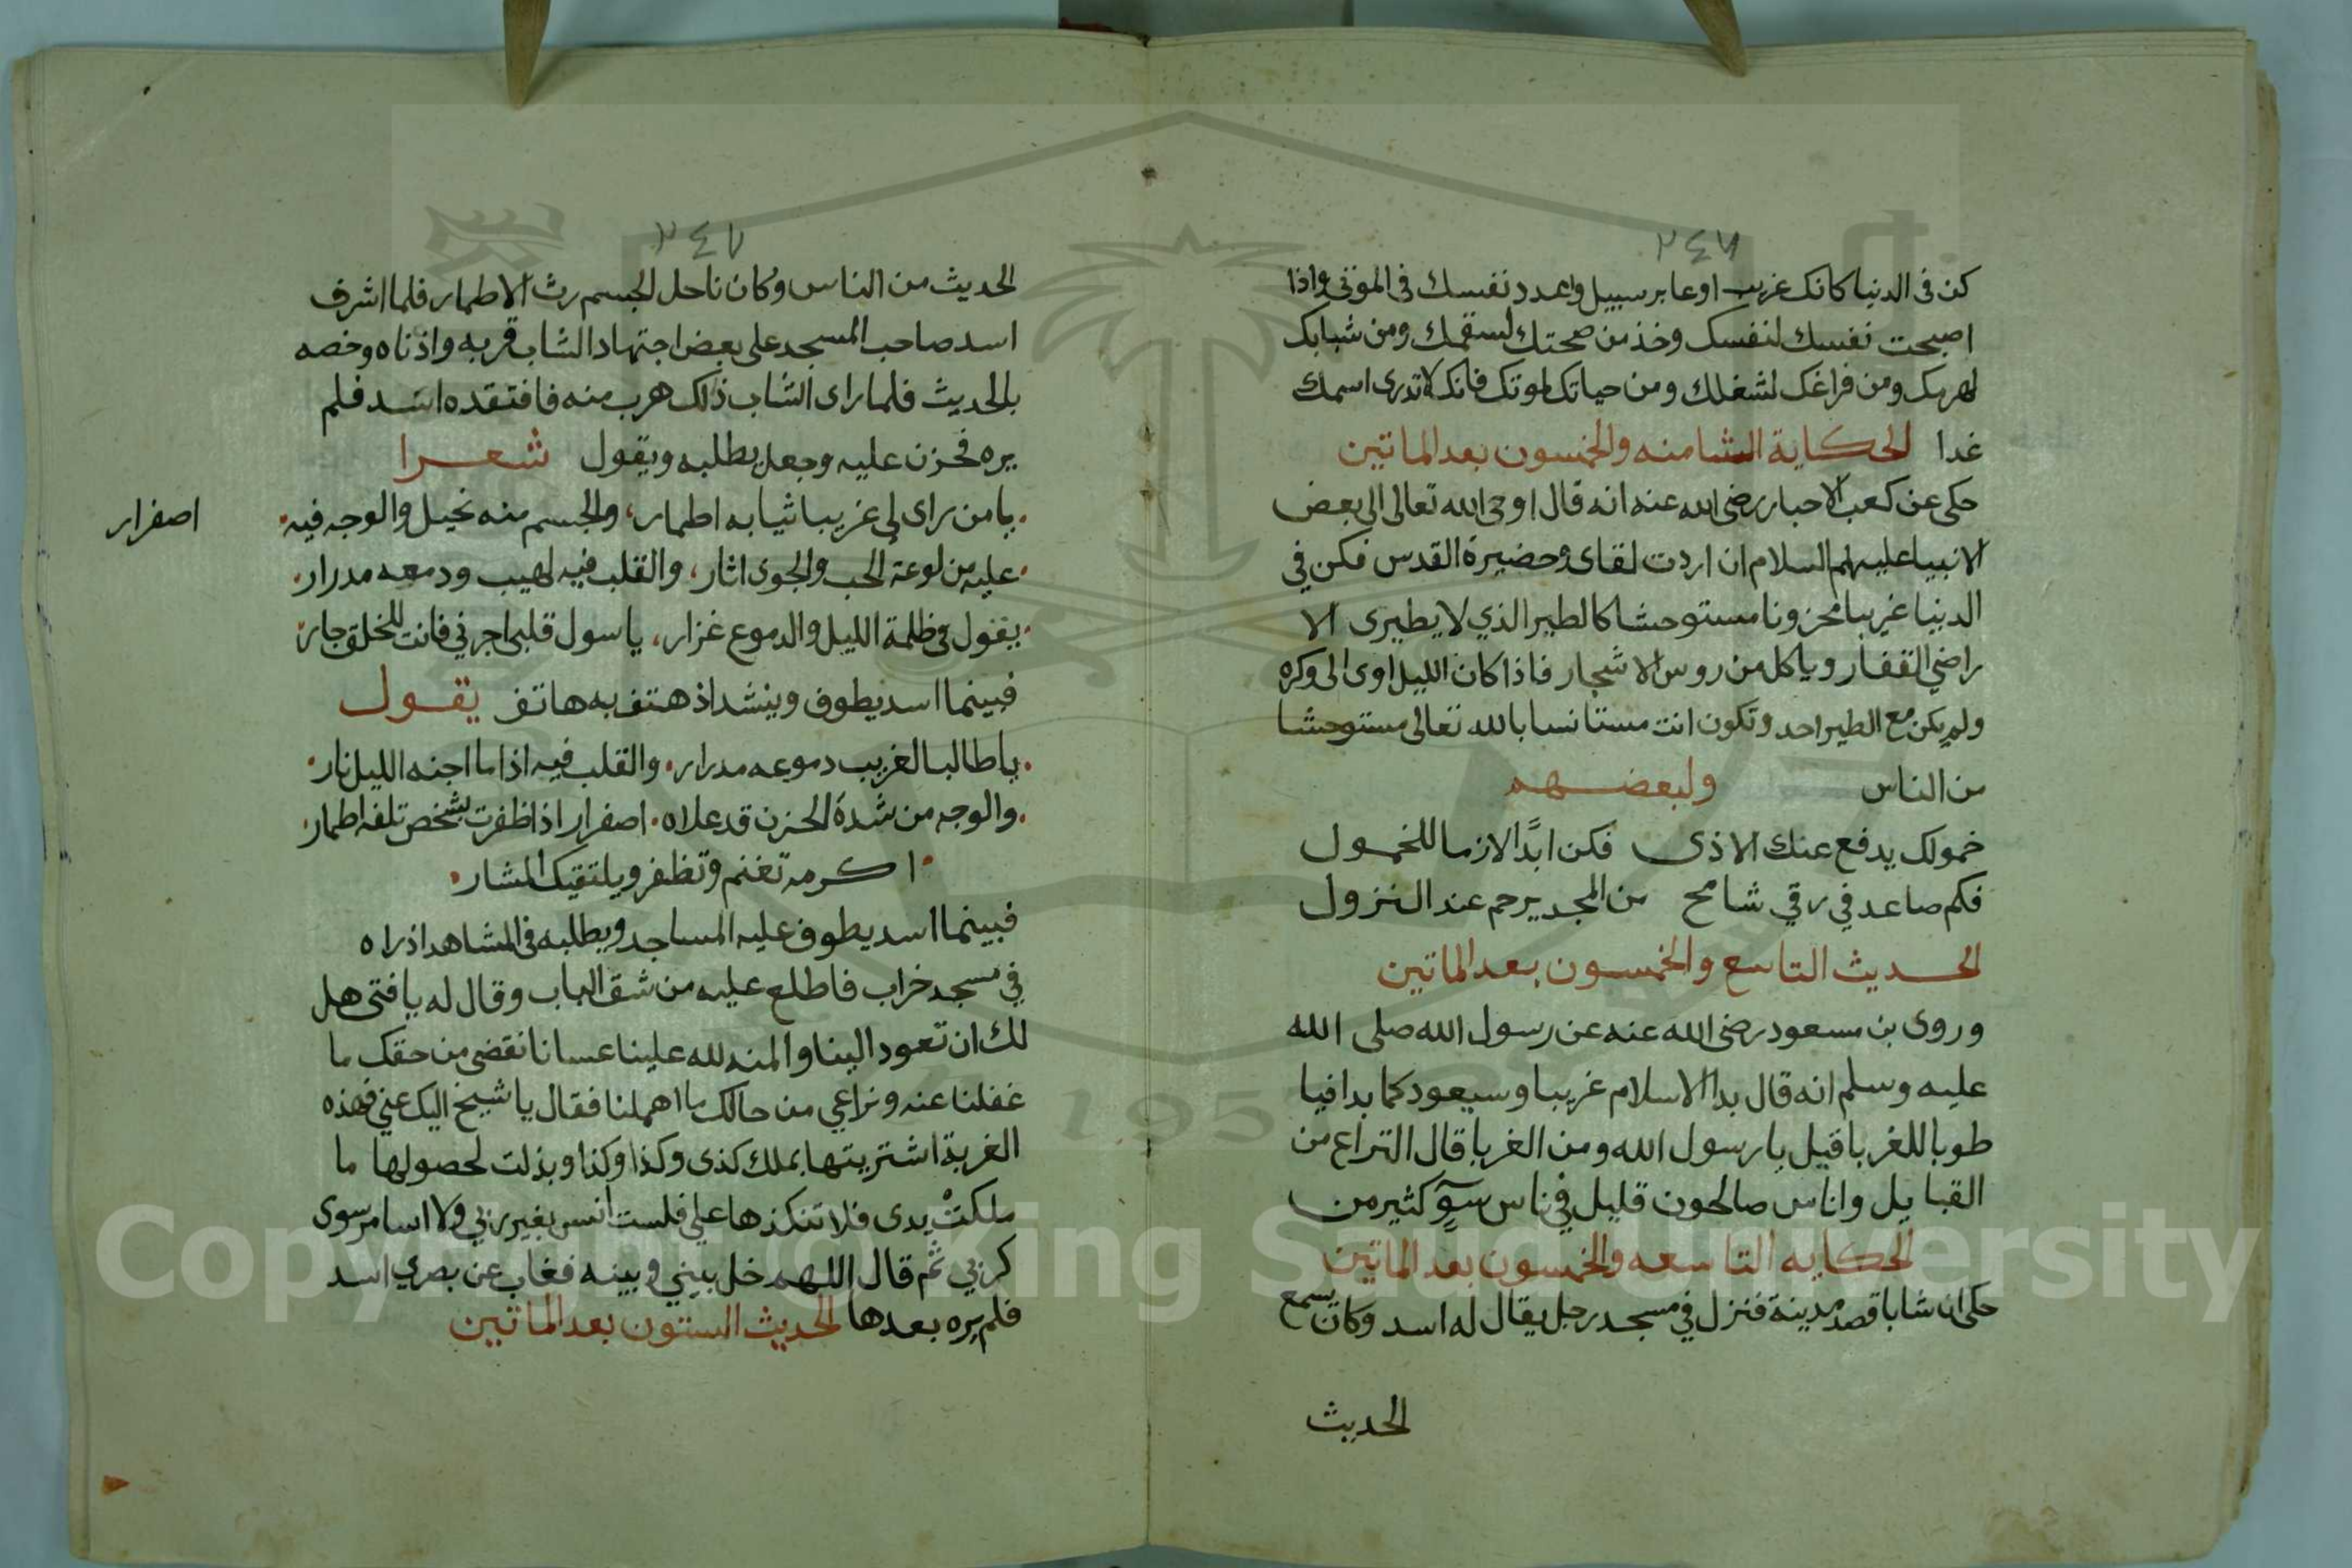 ٢٤٧
كن فى الدنيا كانك غريب او عابر سبيل واعدد نفسك فى الموتى واذا
اصبحت نفسك لنفسك وخذ من صحتك لسقمك ومن شبابك
لهرمك ومن فراغك لشغلك ومن حياتك لموتك فانك لا تدرى اسمك
غدا الحكاية الثامنه والخمسون بعد الماتين
حكى عن كعب الاحبار رضى الله عنه انه قال اوحى الله تعالى الى بعض
الانبيا عليهم السلام ان اردت لقاى وحضيرة القدس فكن في
الدنيا غريبا محزونا مستوحشا كالطير الذي لا يطيرى الا
راضي القفار وياكل من روس الاشجار فاذا كان الليل اوى الى وكره
ولم يكن مع الطير احد وتكون انت مستانسا بالله تعالى مستوحشا
من الناس ولبعضهم
خمولك يدفع عنك الاذى فكن ابدًا لازما للخمول
فكم صاعد في رقي شامخ من المجد يرحم عند النزول
الحديث التاسع والخمسون بعد الماتين
وروى بن مسعود رضى الله عنه عن رسول الله صلى الله
عليه وسلم انه قال بدا الاسلام غريبا وسيعود كما بدا فيا
طوبا للغربا قيل يا رسول الله ومن الغربا قال التراع من
القبايل واناس صالحون قليل في ناس سوٓءٍ كثير من
الحكايه التاسعه والخمسون بعد الماتين
حكى ان شابا قصد مدينة فنزل في مسجد رجل يقال له اسد وكان يسمع
الحديث
٢٤٧
الحديث من الناس وكان ناحل الجسم رث الاطمار فلما اشرف
اسد صاحب المسجد على بعض اجتهاد الشاب قربه واذناه وخصه
بالحديث فلما راى الشاب ذلك هرب منه فافتقده اسد فلم
يره فحزن عليه وجعل يطلبه ويقول شعرا
يا من راى لى غريبا ثيابه اطمار، والجسم منه نحيل والوجه فيه
اصفرار
عليه من لوعة الحب والجوى اثار، والقلب فيه لهيب ودمعه مدرار
يقول فى ظلمة الليل والدموع غزار، يا سول قلبى اجرني فانت للخلق جار
فبينما اسد يطوف وينشد اذ هتف به هاتف يقول
يا طالبا لغريب دموعه مدرار والقلب فيه اذا ما اجنه الليل نار
والوجه من شدة الحزن قد علاه اصفرار اذا ظفرت بشخص تلفه اطمار
اكرمه تغنم وتظفر ويلتقيك المشار
فبينما اسد يطوف عليه المساجد ويطلبه فى المشاهد اذراه
في مسجد خراب فاطلع عليه من شق الباب وقال له يا فتى هل
لك ان تعود الينا والمنه لله علينا عسانا نقضى من حقك ما
غفلنا عنه ونراعي من حالك ما اهملنا فقال يا شيخ اليك عني فهذه
الغربة اشتريتها بملك كذى وكذا وكذا وبذلت لحصولها ما
ملكتْ يدى فلا تنكذها علي فلست انس بغير ربي ولا اسامر سوى
كربي ثم قال اللهم خل بيني وبينه فغاب عن بصري اسد
فلم يره بعدها الحديث الستون بعد الماتين
Copyright © King Saud University